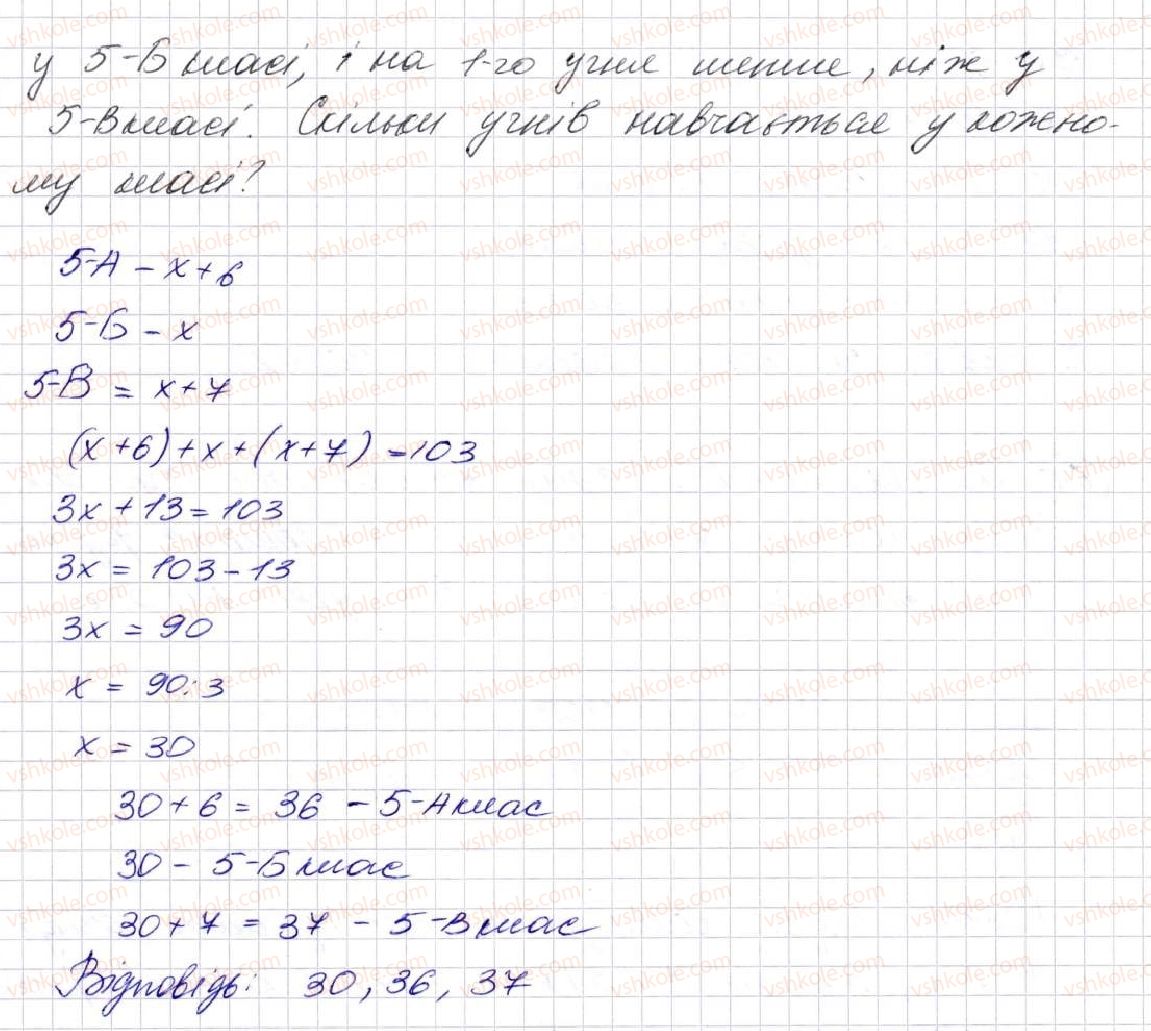 у 5-Б класі, і на 1-го учня менше, ніж у
5-В класі. Скільки учнів навчається у кожно-
му класі?
5-А - х+6
5-Б - х
5-В = х+7
(х+6)+х+(х+7)=103
3х+13=103
3х = 103-13
3х = 90
х = 90:3
х = 30
30+6 = 36 - 5-А клас
30 - 5-Б клас
30+7 = 37 - 5-В клас
Відповідь: 30, 36, 37